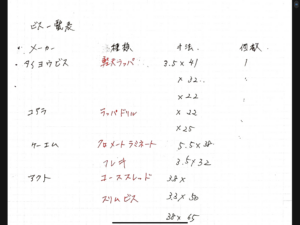 ビス一覧表
・メーカー 種類 寸法 個数
・ダイヨウビス 軽天ラッパ 3.5×41 1
×32
×22
コクラ ラッパドリル ×22
×25
ケーエム クロメートラミネート 5.5×38
フレキ 3.5×32
アクト コーススレッド 38×
スリムビス 33×50
38×65